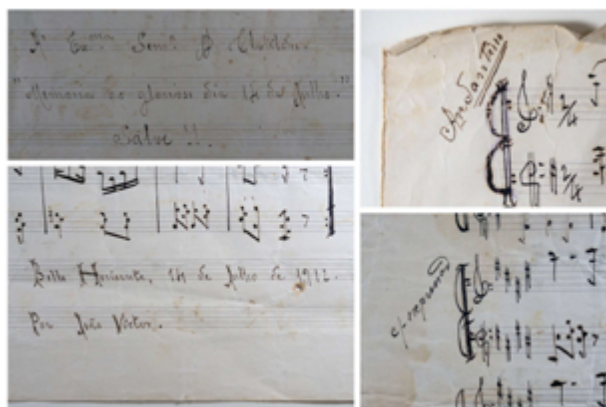 "Memoria do glorioso dia 14 de Julho."
Salve !!.
Bello Horizonte, 14 de Julho de 1911.
Por João Victor.
Andantino
2/4
2/4